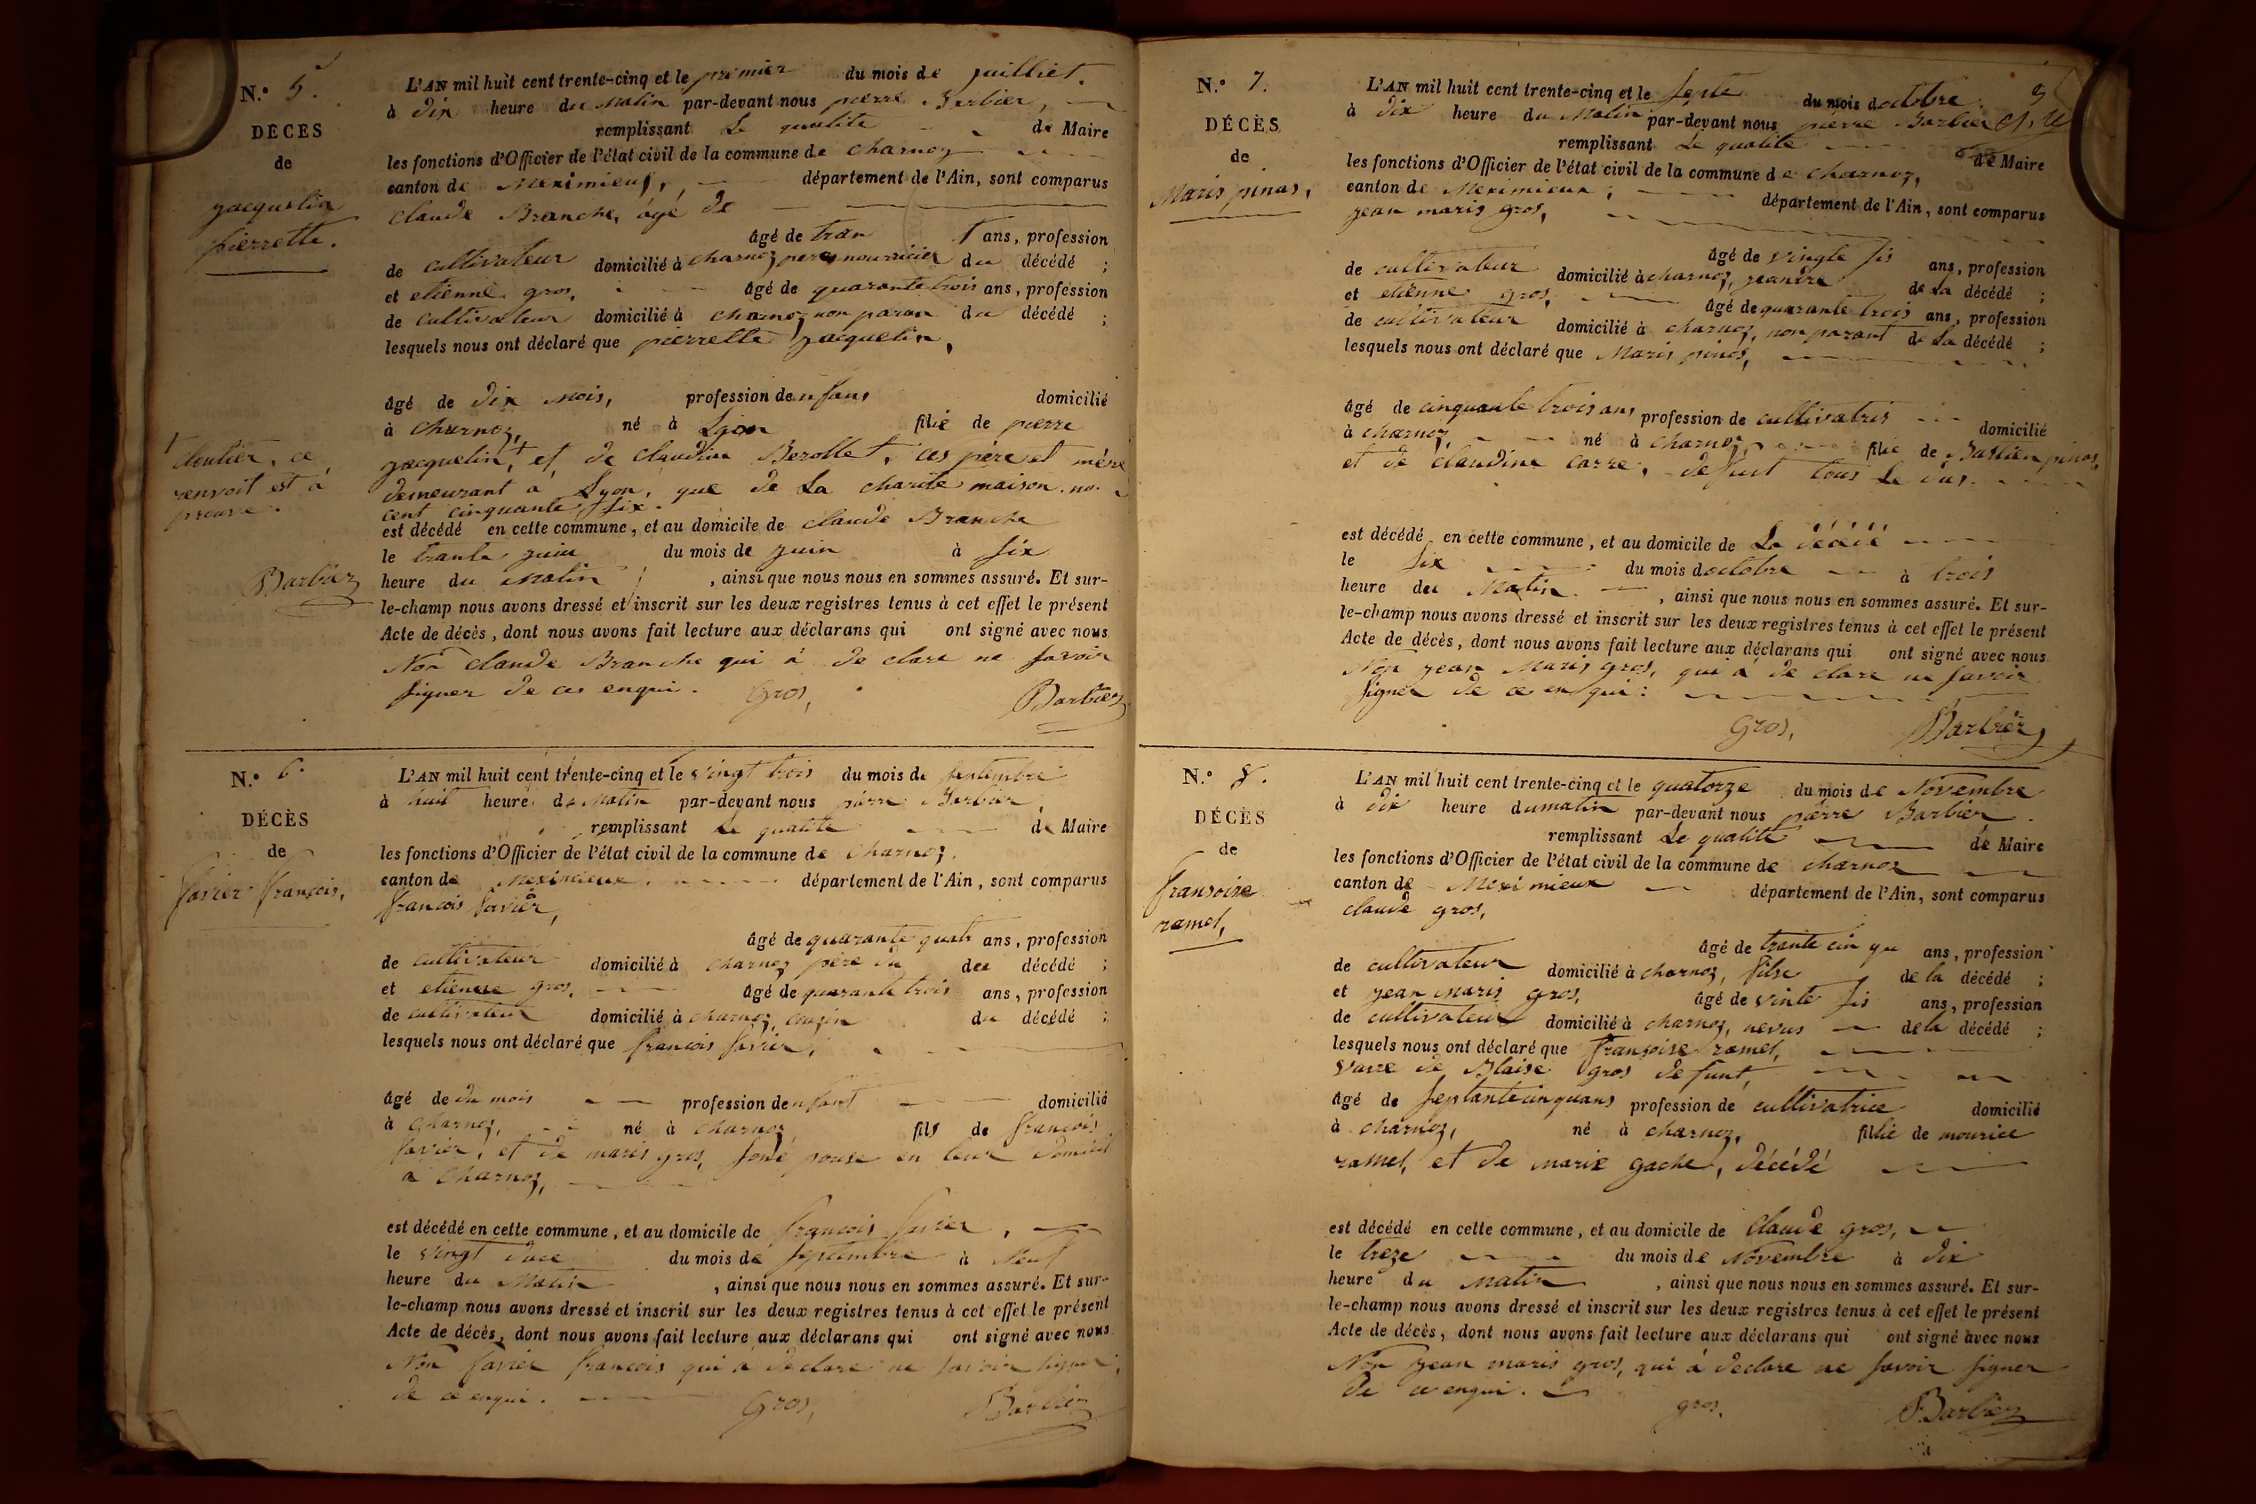 N.º 5.
DÉCES
de
jacquelin
pierrette.
L'AN mil huit cent trente-cinq et le premier du mois de juilliet.
à dix heure du matin par-devant nous pierre Barbier,
remplissant Le qualite de Maire
les fonctions d'Officier de l'état civil de la commune de charnoz
canton de Meximieux, département de l'Ain, sont comparus
claude Branche, âgé de
âgé de tran t ans, profession
de cultivateur domicilié à charnoz pere nourricier du décédé ;
et etienne gros, âgé de quarante trois ans, profession
de cultivateur domicilié à charnoz non paran du décédé ;
lesquels nous ont déclaré que pierrette jacquelin,
âgé de dix mois, profession denfans domicilié
à charnoz, né à Lyon filie de pierre
jacquelin, et de claudine Berollet, ces père et mère
demeurant a Lyon, que de La charité maison no.
cent cinquante six.
est décédé en cette commune, et au domicile de claude Branche
le trante juin du mois de juin à six
heure du Matin , ainsi que nous nous en sommes assuré. Et sur-
le-champ nous avons dressé et inscrit sur les deux registres tenus à cet effet le présent
Acte de décès, dont nous avons fait lecture aux déclarans qui ont signé avec nous
Non claude Branche qui a de clare ne savoir
signer de ces enqui. Gros, Barbier
clutier, ce
renvoit est a
prouve.
Barbier
N.º 6.
DÉCÈS
de
favier françois,
L'AN mil huit cent trente-cinq et le vingt trois du mois de septembre
à huit heure du Matin par-devant nous pierre Barbier,
remplissant Le qualite de Maire
les fonctions d'Officier de l'état civil de la commune de charnoz,
canton de Meximieux, département de l'Ain, sont comparus
françois favier,
âgé de quarante quatr ans, profession
de cultivateur domicilié à charnoz père du décédé ;
et etienne gros, âgé de quarante trois ans, profession
de cultivateur domicilié à charnoz, cousin du décédé ;
lesquels nous ont déclaré que françois favier,
âgé de du mois profession denfant domicilié
à charnoz, né à charnoz fils de françois
favier, et de maris gros, son é pouse en leur domicil
a charnoz,
est décédé en cette commune, et au domicile de françois favier,
le vingt duce du mois de septembre à neuf
heure du Matin , ainsi que nous nous en sommes assuré. Et sur-
le-champ nous avons dressé et inscrit sur les deux registres tenus à cet effet le présent
Acte de décès, dont nous avons fait lecture aux déclarans qui ont signé avec nous
Non favier françois qui a declare ne savoir signer
de ce enqui. Gros, Barbier
N.º 7.
DÉCÈS
de
Maris pinas,
L'AN mil huit cent trente-cinq et le septe du mois doctobre.
à dix heure du Matin par-devant nous pierre Barbier
remplissant Le qualite de Maire
les fonctions d'Officier de l'état civil de la commune de charnoz,
canton de Meximieux, département de l'Ain, sont comparus
jean maris gros,
âgé de vingte sis ans, profession
de cultivateur domicilié à charnoz, jeandre de La décédé ;
et etienne gros, âgé de quarante trois ans, profession
de cultivateur domicilié à charnoz, non parant de La décédé ;
lesquels nous ont déclaré que Maris pinas,
âgé de cinquante trois ans profession de cultivatris domicilié
à charnoz, né à charnoz, filie de Bastien pinas,
et de claudine carre, defunt tous Le dus.
est décédé en cette commune, et au domicile de La décédé
le six du mois doctobre à trois
heure du Matin , ainsi que nous nous en sommes assuré. Et sur-
le-champ nous avons dressé et inscrit sur les deux registres tenus à cet effet le présent
Acte de décès, dont nous avons fait lecture aux déclarans qui ont signé avec nous
Non jean Maris gros, qui a de clare ne savoir
signer de ce en qui:
Gros, Barbier
N.º 8.
DÉCÈS
de
fransoise
ramel,
L'AN mil huit cent trente-cinq et le quatorze du mois de Novembre
à dix heure dumatin par-devant nous pierre Barbier
remplissant Le qualite de Maire
les fonctions d'Officier de l'état civil de la commune de charnoz
canton de Meximieux département de l'Ain, sont comparus
claude gros,
âgé de trante cin qu ans, profession
de cultivateur domicilié à charnoz, filse de la décédé ;
et jean maris gros, âgé de vinte sis ans, profession
de cultivateur domicilié à charnoz, nevus dela décédé ;
lesquels nous ont déclaré que françoise ramel,
vave de Blaise gros defunt,
âgé de septantecinquans profession de cultivatrice domicilié
à charnoz, né à charnoz, filie de mourice
ramel, et de marie gache, décédé
est décédé en cette commune, et au domicile de claude gros,
le treze du mois de Novembre à dix
heure du matin , ainsi que nous nous en sommes assuré. Et sur-
le-champ nous avons dressé et inscrit sur les deux registres tenus à cet effet le présent
Acte de décès, dont nous avons fait lecture aux déclarans qui ont signé avec nous
Non jean maris gros, qui a declare ne savoir signer
de ce enqui.
gros. Barbier